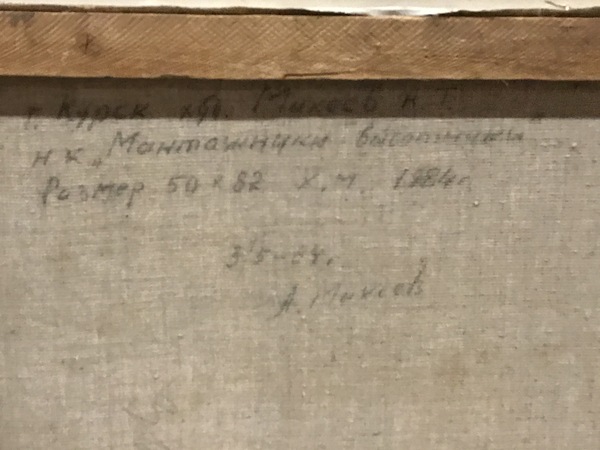 г. Курск худ. Михеев Н.Т.
н к „Монтажники высотники"
Размер 50 х 82 Х.М. 1984г.
А. Михеев